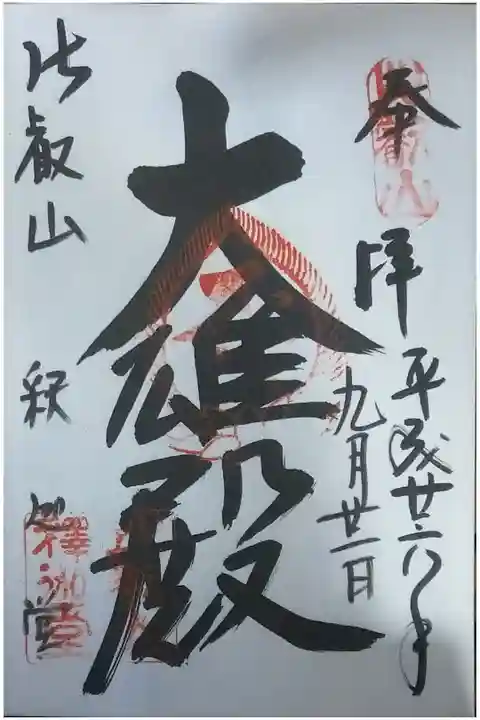 奉拝
平成廿六年
九月廿一日
大雄殿
比叡山 釈迦堂
釋迦堂